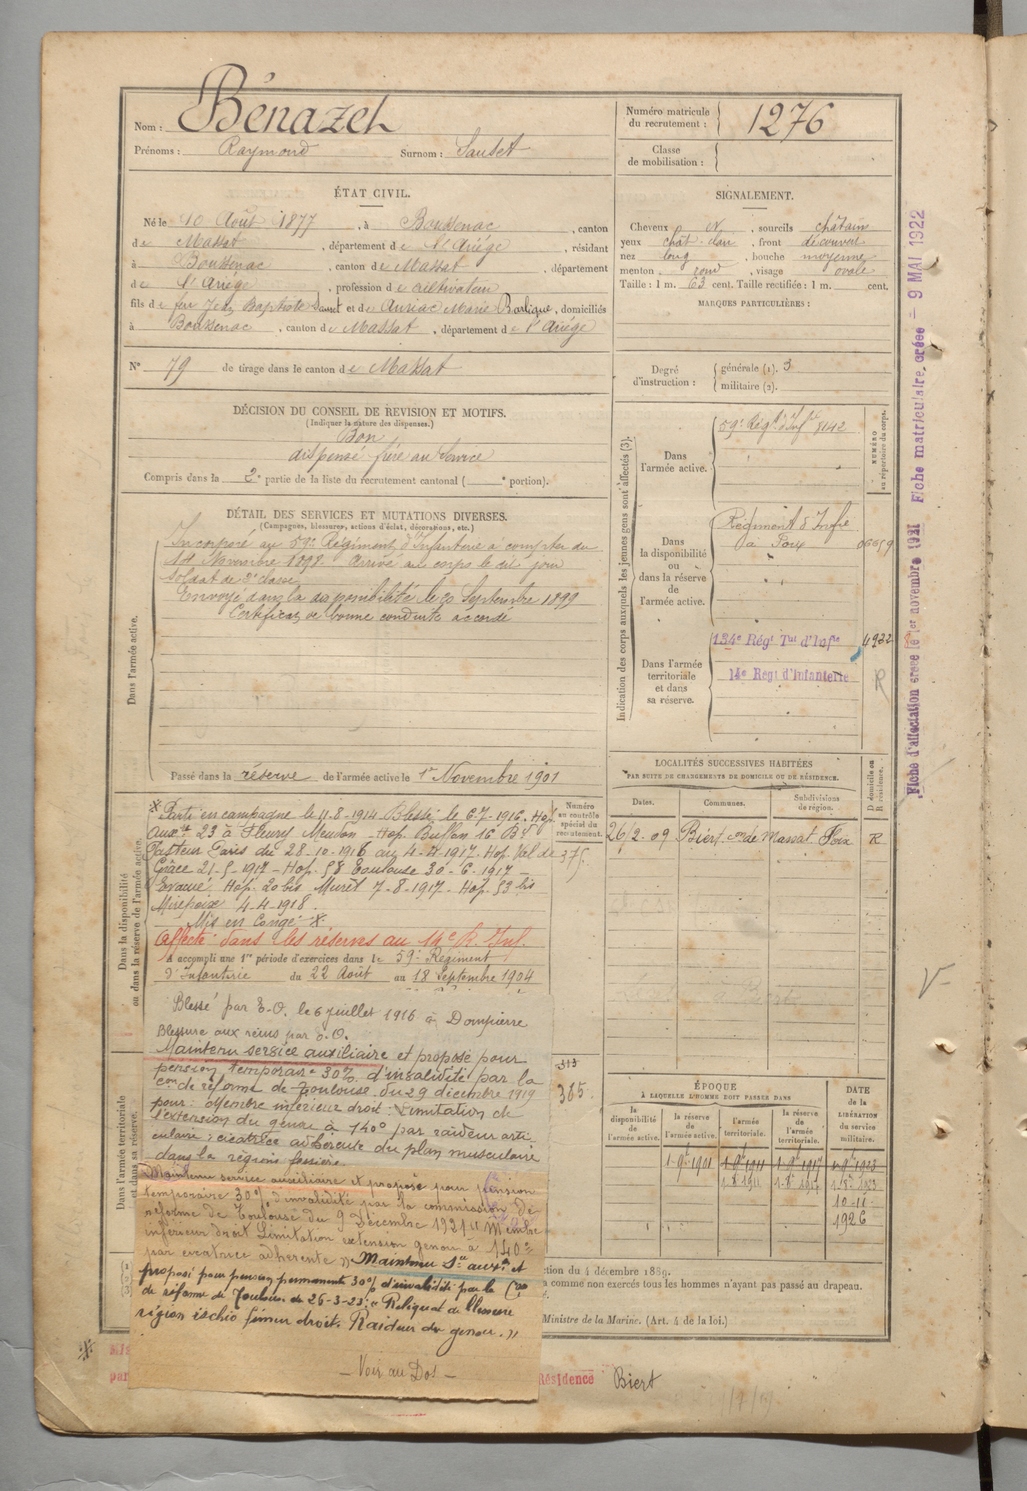 Nom : Bénazet
Prénoms : Raymond Surnom : Sautet
Numéro matricule du recrutement : 1276
Classe de mobilisation :
ÉTAT CIVIL.
Né le 10 Août 1877, à Boussenac, canton
de Massat, département de l'Ariége, résidant
à Boussenac, canton de Massat, département
de l'Ariége, profession de cultivateur
fils de feu Jean Baptiste Sautet et de Auriac Marie, domiciliés
à Boussenac, canton de Massat, département de l'Ariége
N° 79 de tirage dans le canton de Massat
SIGNALEMENT.
Cheveux et, sourcils châtain
yeux chât. clair, front découvert
nez long, bouche moyenne
menton rond, visage ovale
Taille : 1 m. 63 cent. Taille rectifiée : 1 m. cent.
MARQUES PARTICULIÈRES :
Degré d'instruction : générale (1). 3
militaire (2).
DÉCISION DU CONSEIL DE REVISION ET MOTIFS.
(Indiquer la nature des dispenses.)
Bon
dispensé frère au service
Compris dans la 2e partie de la liste du recrutement cantonal ( e portion).
DÉTAIL DES SERVICES ET MUTATIONS DIVERSES.
(Campagnes, blessures, actions d'éclat, décorations, etc.)
Dans l'armée active.
Incorporé au 59e Régiment d'Infanterie à compter du
14 Novembre 1898. Arrivé au corps le dit jour
soldat de 2e classe
Envoyé dans la disponibilité le 20 Septembre 1899
Certificat de bonne conduite accordé
Passé dans la réserve de l'armée active le 1er Novembre 1901
Indication des corps auxquels les jeunes gens sont affectés (3).
NUMÉRO au répertoire du corps.
Dans l'armée active.
59e Régt d'Infie 8142
Dans la disponibilité ou dans la réserve de l'armée active.
Régiment d'Infie
à Foix 06659
Dans l'armée territoriale et dans sa réserve.
134e Régt Tal d'Infie 4922
14e Regt d'Infanterie R
Dans la disponibilité ou dans la réserve de l'armée active.
Numéro au contrôle spécial du recrutement.
Parti en campagne le 11-8-1914 Blessé le 6-7-1916. Hop.
auxre 23 à Fleury Meudon - Hop. Buffon 16 Bd
Pasteur Paris du 28-10-1916 au 4-4-1917. Hop. Val de 375
Grâce 21-5-1917 - Hop. 58 Toulouse 30-6-1917 -
Evacué Hop. 20 bis Muret 7-8-1917 - Hop. 53 bis
Mirepoix 4-4-1918.
Mis en Congé
Affecté dans les réserves au 14e R. Inf.
A accompli une 1re période d'exercices dans le 59e Régiment
d'Infanterie du 22 Août au 18 Septembre 1904
Blessé par E.O. le 6 juillet 1916 à Dompierre
Blessure aux reins par E.O.
Maintenu service auxiliaire et proposé pour
pension temporaire 30% d'invalidité par la
con de réforme de Toulouse du 29 décembre 1919
pour : Membre inférieur droit : Limitation de
l'extension du genou à 140° par raideur arti-
culaire ; cicatrice adhérente du plan musculaire
dans la région fessière.
Maintenu service auxiliaire et proposé pour pension
temporaire 30% d'invalidité par la commission de
réforme de Toulouse du 9 Décembre 1921 " Membre
inférieur droit Limitation extension genou à 140°
par cicatrice adhérente " Maintenu Sce auxre et
proposé pour pension permanente 30% d'invalidité par la Con
de réforme de Toulouse du 26-3-23 : " Reliquat de blessure
région ischio fémur droit. Raideur du genou. "
- Voir au Dos -
Dans l'armée territoriale et dans sa réserve.
313
385.
LOCALITÉS SUCCESSIVES HABITÉES
PAR SUITE DE CHANGEMENTS DE DOMICILE OU DE RÉSIDENCE.
Dates. Communes. Subdivisions de région. D domicile ou R résidence.
26/2-09 Biert con de Massat Foix R
ÉPOQUE
À LAQUELLE L'HOMME DOIT PASSER DANS
la disponibilité de l'armée active. la réserve de l'armée active. l'armée territoriale. la réserve de l'armée territoriale. DATE de la LIBÉRATION du service militaire.
1-9bre 1901 1-9bre 1911 1-9bre 1917 1-9bre 1923
10-11
1926
ction du 4 décembre 1889.
a comme non exercés tous les hommes n'ayant pas passé au drapeau.
Ministre de la Marine. (Art. 4 de la loi.)
Résidence Biert
Fiche d'affectation créée le 1er novembre 1921 Fiche matriculaire, créée - 9 MAI 1922